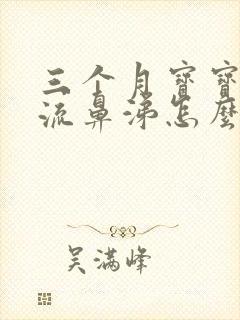 三个月寶寶
流鼻涕怎麼
吴满峰